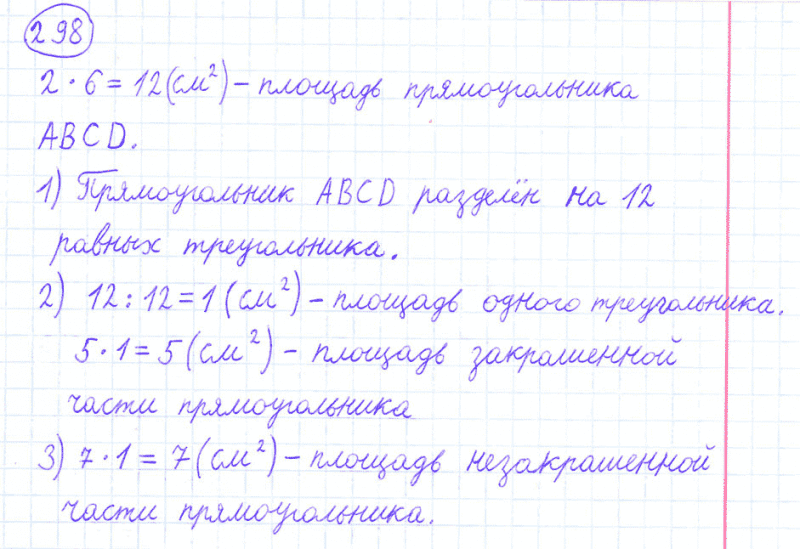 298
2 · 6 = 12 (см²) – площадь прямоугольника
ABCD.
1) Прямоугольник ABCD разделён на 12
равных треугольника.
2) 12 : 12 = 1 (см²) – площадь одного треугольника.
5 · 1 = 5 (см²) – площадь закрашенной
части прямоугольника
3) 7 · 1 = 7 (см²) – площадь незакрашенной
части прямоугольника.